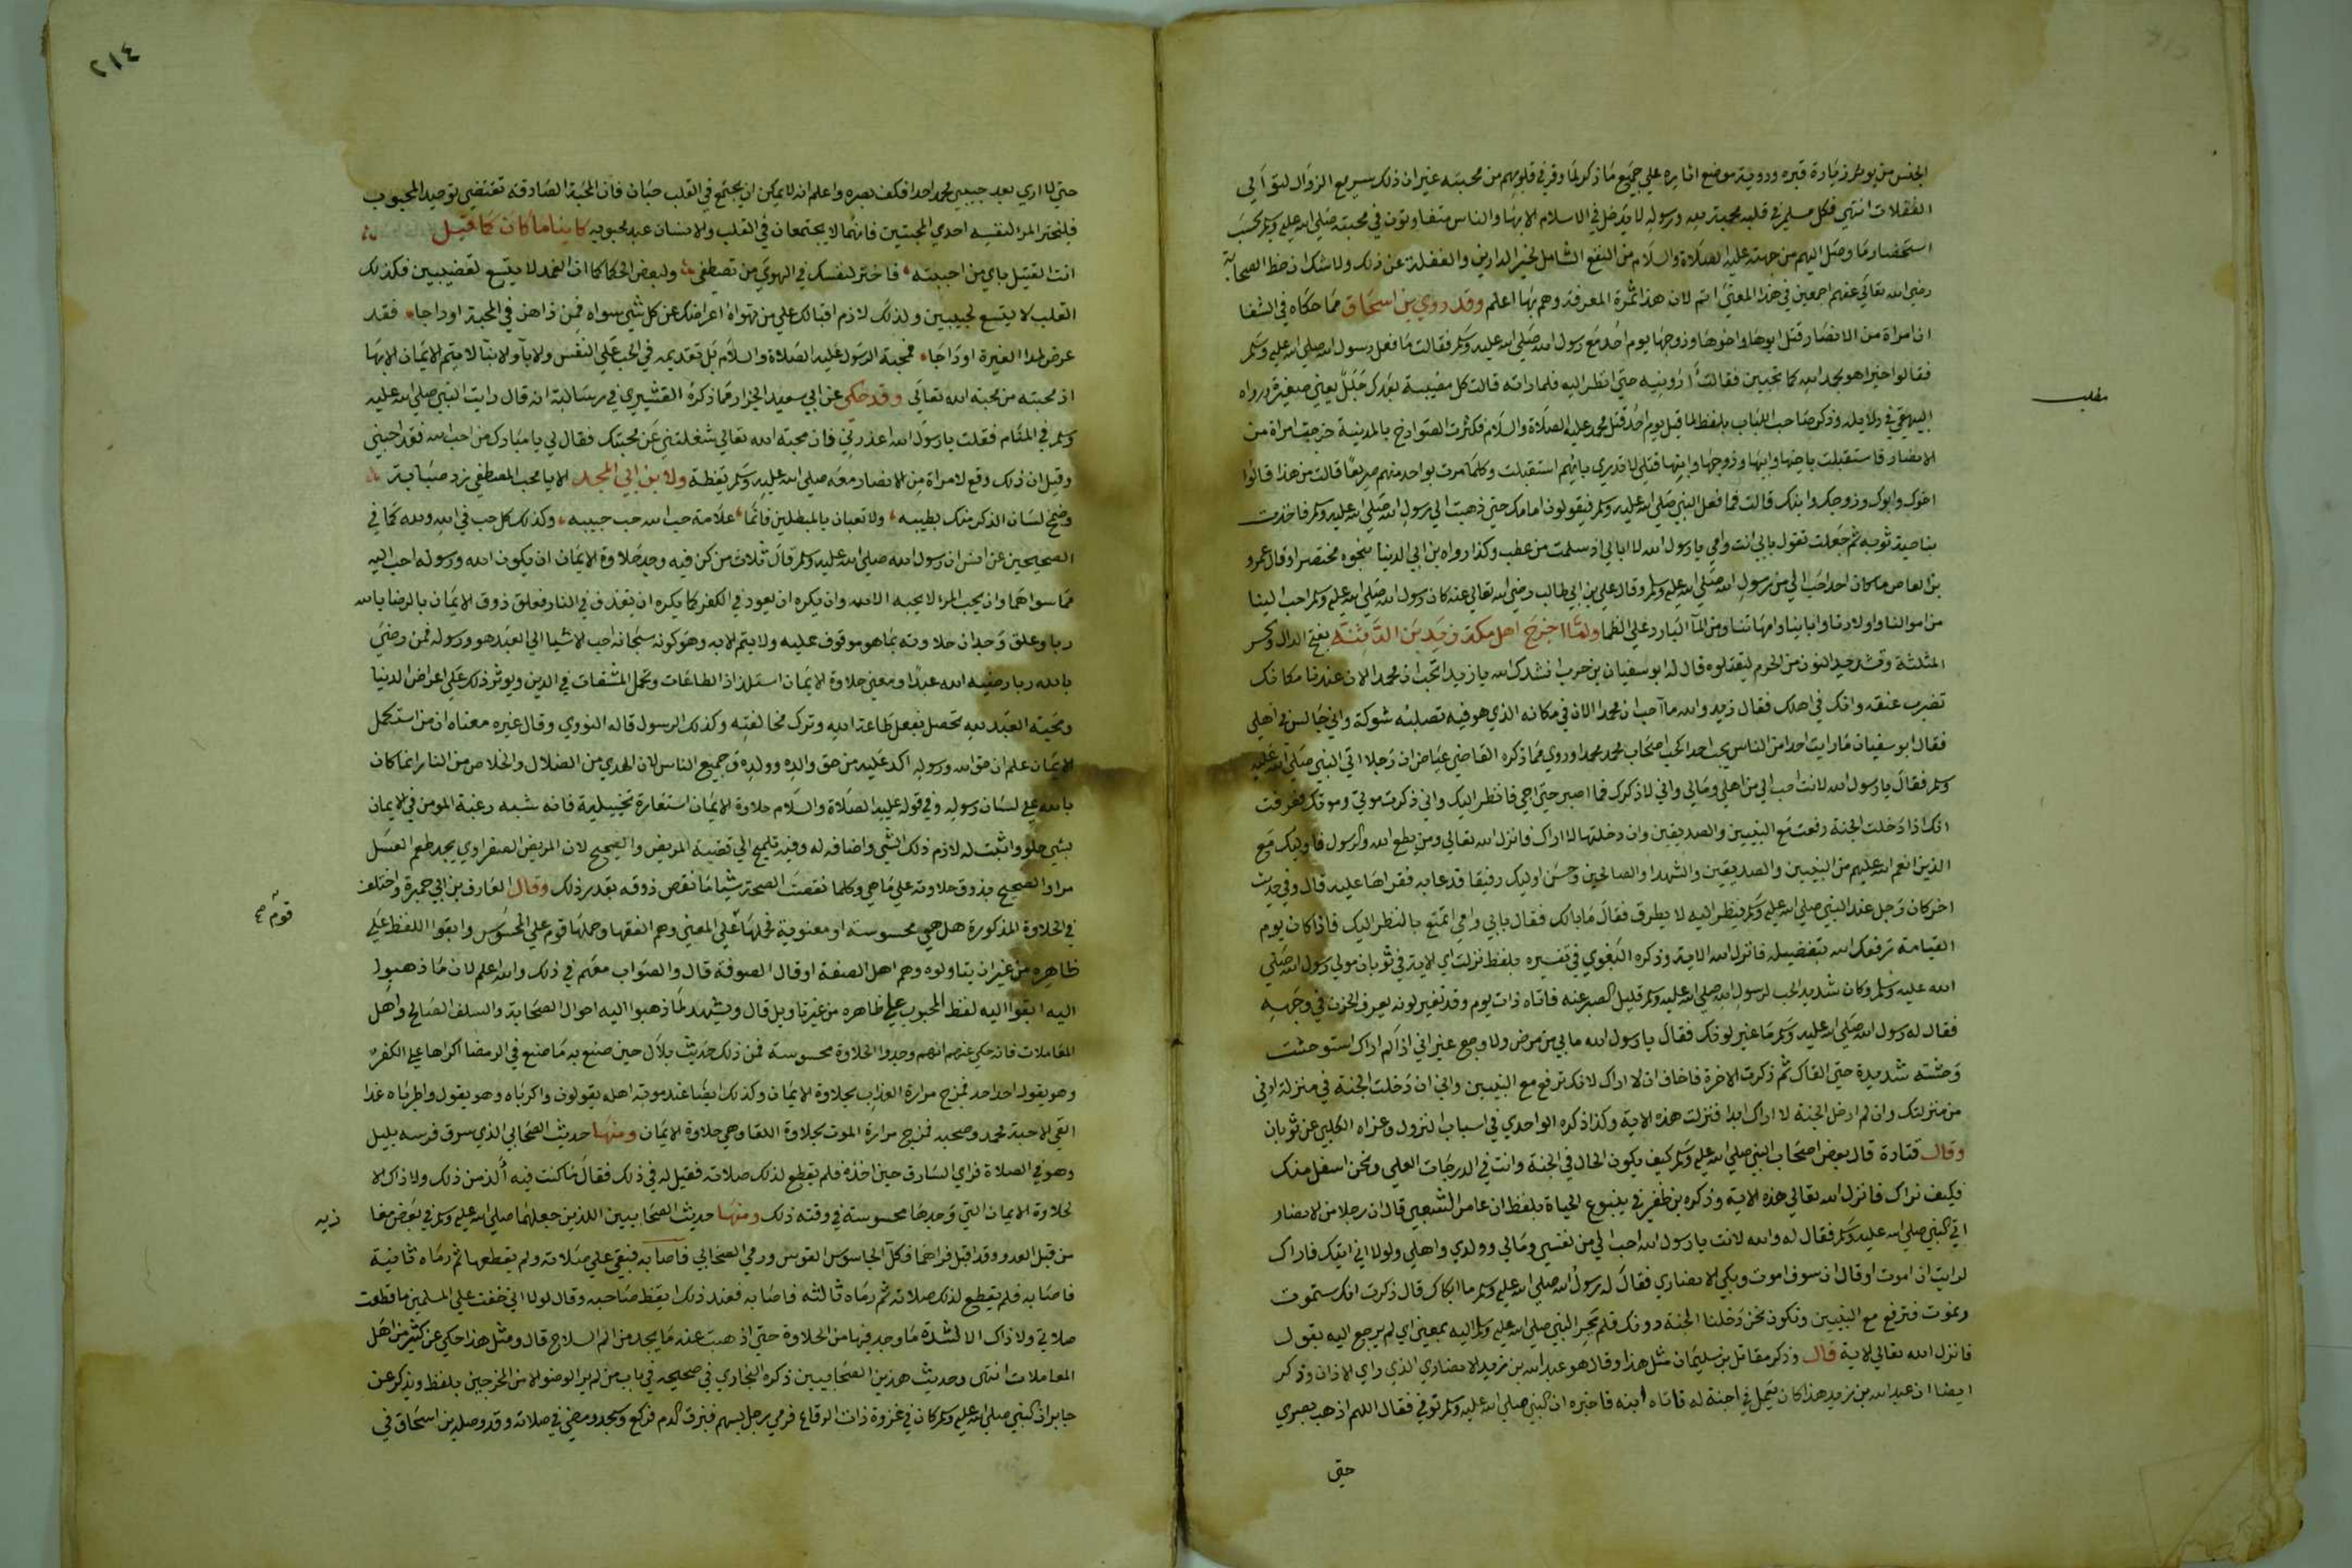 الجنس من يوثر زيارة قبره ورؤية موضع اثاره علي جميع ما ذكر لما وقر في قلوبهم من محبته غير ان ذلك سريع الزوال لتوالي
الغفلات انتهي فكل مسلم في قلبه محبة الله ورسوله لا يدخل في الاسلام الا بها والناس متفاوتون في محبته صلي الله عليه وسلم بحسب
استحضار ما وصل اليهم من جهته عليه الصلاة والسلام من النفع الشامل لخير الدارين والغفلة عن ذلك ولا شك ان حظ الصحابة
رضي الله تعالي عنهم اجمعين في هذا المعني اتم لان هذا ثمرة المعرفة وهم بها اعلم وقد روي بن اسحاق مما حكاه في الشفا
ان امراة من الانصار قتل ابوها واخوها وزوجها يوم احد مع رسول الله صلي الله عليه وسلم فقالت ما فعل رسول الله صلي الله عليه وسلم
فقالوا خيرا هو بحمد الله كما تحبين فقالت ارونيه حتي انظر اليه فلما راته قالت كل مصيبة بعدك جلل يعني صغيرة ورواه
البيهقي في دلايله وذكر صاحب اللباب بلفظ لما قيل يوم احد قتل محمد عليه الصلاة والسلام فكثرت الصوارخ بالمدينة خرجت امراة من
الانصار فاستقبلت باخيها وابيها وزوجها وابنها قتلي لا تدري بايهم استقبلت وكلما مرت بواحد منهم صريعا قالت من هذا قالوا
اخوك وابوك وزوجك وابنك قالت فما فعل النبي صلي الله عليه وسلم فيقولون امامك حتي ذهبت الي رسول الله صلي الله عليه وسلم فاخذت
بناصية ثوبه ثم جعلت تقول بابي انت وامي يا رسول الله لا ابالي اذ سلمت من عطب وكذا رواه بن ابي الدنيا بنحوه مختصرا وقال عمرو
بن العاص ما كان احد احب الي من رسول الله صلي الله عليه وسلم وقال علي بن ابي طالب رضي الله تعالي عنه كان رسول الله صلي الله عليه وسلم احب الينا
من اموالنا واولادنا وابائنا وامهاتنا ومن المآ البارد علي الظما ولما اخرج اهل مكة زيد بن الدثنة بفتح الدال وكسر
المثلثة وتشديد النون من الحرم ليقتلوه قال له ابو سفيان بن حرب انشدك الله يا زيد اتحب ان محمد الان عندنا مكانك
تضرب عنقه وانك في اهلك فقال زيد والله مآ احب ان محمدا الان في مكانه الذي هو فيه تصيبه شوكة واني جالس في اهلي
فقال ابو سفيان ما رايت احدا من الناس يحب احدا كحب اصحاب محمد محمدا وروي مما ذكره القاضي عياض ان رجلا اتي النبي صلي الله عليه
وسلم فقال يا رسول الله لانت احب الي من اهلي ومالي واني لاذكرك فما اصبر حتي اجي فانظر اليك واني ذكرت موتي وموتك فعرفت
انك اذا دخلت الجنة رفعت مع النبيين والصديقين وان دخلتها لا اراك فانزل الله تعالي ومن يطع الله والرسول فاوليك مع
الذين انعم الله عليهم من النبيين والصديقين والشهدا والصالحين وحسن اوليك رفيقا فدعا به فقراها عليه قال وفي حديث
اخر كان رجل عند النبي صلي الله عليه وسلم ينظر اليه لا يطرق فقال ما بالك فقال بابي وامي اتمتع بالنظر اليك فاذا كان يوم
القيامة ترفعك الله بتفضيله فانزل الله الاية وذكره البغوي في تفسيره بلفظ نزلت اي الاية في ثوبان مولي رسول الله صلي
الله عليه وسلم وكان شديد الحب لرسول الله صلي الله عليه وسلم قليل الصبر عنه فاتاه ذات يوم وقد تغير لونه يعرف الحزن في وجهه
فقال له رسول الله صلي الله عليه وسلم ما غير لونك فقال يا رسول الله ما بي من مرض ولا وجع غير اني اذا لم اراك استوحشت
وحشته شديدة حتي القاك ثم ذكرت الاخرة فاخاف ان لا اراك لانك ترفع مع النبيين واني ان دخلت الجنة في منزلة ادني
من منزلتك وان لم ادخل الجنة لا اراك ابدا فنزلت هذه الاية وكذا ذكره الواحدي في اسباب النزول وعزاه الكلبي عن ثوبان
وقال قتادة قال بعض اصحاب النبي صلي الله عليه وسلم كيف يكون الحال في الجنة وانت في الدرجات العلي ونحن اسفل منك
فكيف نراك فانزل الله تعالي هذه الاية وذكره بن ظفر في ينبوع الحياة بلفظ ان عامر الشعبي قال ان رجلا من الانصار
اتي النبي صلي الله عليه وسلم فقال له والله لانت يا رسول الله احب الي من نفسي ومالي وولدي واهلي ولولا اني اتيك فاراك
لرايت ان اموت او قال ان سوف اموت وبكي الانصاري فقال له رسول الله صلي الله عليه وسلم ما ابكاك قال ذكرت انك ستموت
ونموت فترفع مع النبيين ونكون نحن دخلنا الجنة دونك فلم يحر النبي صلي الله عليه وسلم اليه بمعني اي لم يرجع اليه بقول
فانزل الله تعالي الاية قال وذكر مقاتل بن سليمان مثل هذا وقال هو عبد الله بن زيد الانصاري الذي راي الاذان وذكر
ايضا ان عبد الله بن زيد هذا كان يعمل في اجنة له فاتاه ابنه فاخبره ان النبي صلي الله عليه وسلم توفي فقال اللهم اذهب بصري
حتي
مطلب
٢١٤
حتي لا اري بعد حبيبي محمد احدا فكف بصره واعلم انه لا يمكن ان يجتمع في القلب حبان فان المحبة الصادقة تقتضي توحيد المحبوب
فليختر المرء لنفسه احدي المحبتين فانهما لا يجتمعان في القلب والانسان عند محبوبه كاينا ما كان كما قيل
انت القتيل باي من احببته فاختر لنفسك في الهوي من تصطفي ولبعض الحكما كما ان الغمد لا يتسع لعضبين فكذلك
القلب لا يتسع لحبيبين ولذلك لازم اقبالك علي من تهواه اعراضك عن كل شي سواه فمن داهن في المحبة او داجا فقد
عرض لمدا الغيرة اوداجا فمحبة الرسول عليه الصلاة والسلام بل تقديمه في الحب علي النفس والابآ والابنآ لا يتم الايمان الا بها
اذ محبته من محبة الله تعالي وقد حكي عن ابي سعيد الخزاز مما ذكره القشيري في رسالته انه قال رايت النبي صلي الله عليه
وسلم في المنام فقلت يا رسول الله اعذرني فان محبة الله تعالي شغلتني عن محبتك فقال لي يا مبارك من احب الله فقد احبني
وقيل ان ذلك وقع لامراة من الانصار معه صلي الله عليه وسلم يقظة ولابن ابي المجد الا يا محب المصطفي زد صبابة
وضمخ لسان الذكر منك بطيبه ولا تعبان بالمبطلين فانما علامة حب الله حب حبيبه وكذلك كل حب في الله ولله كما في
الصحيحين عن انس ان رسول الله صلي الله عليه وسلم قال ثلاث من كن فيه وجد حلاوة الايمان ان يكون الله ورسوله احب اليه
مما سواهما وان يحب المرء لا يحبه الا لله وان يكره ان يعود في الكفر كما يكره ان يقذف في النار فعلق ذوق الايمان بالرضا بالله
ربا وعلق وجدان حلاوته بما هو موقوف عليه ولا يتم الا به وهو كونه سبحانه احب الاشيا الي العبد هو ورسوله فمن رضي
بالله ربا رضيه الله عبدا ومعني حلاوة الايمان استلذاذ الطاعات وتحمل المشقات في الدين ويوثر ذلك علي اعراض الدنيا
ومحبة العبد لله تحصل بفعل طاعة الله وترك مخالفته وكذلك الرسول قاله النووي وقال غيره معناه ان من استكمل
الايمان علم ان حق الله ورسوله اكد عليه من حق والده وولده وجميع الناس لان الهدي من الضلال والخلاص من النار انما كان
بالله علي لسان رسوله وفي قوله عليه الصلاة والسلام حلاوة الايمان استعارة تخييلية فانه شبه رغبة المومن في الايمان
بشي حلو واثبت له لازم ذلك الشي واضافه له وفيه تلميح الي قضية المريض والصحيح لان المريض الصفراوي يجد طعم العسل
مرا والصحيح يذوق حلاوته علي ما هي وكلما نقصت الصحة شيا ما نقص ذوقه بقدر ذلك وقال العارف بن ابي جمرة واختلف
في الحلاوة المذكورة هل هي محسوسة او معنوية فحملها علي المعني وهم الفقها وحملها قوم علي المحسوس وابقوا اللفظ علي
ظاهره من غير ان يتاولوه وهم اهل الصفة او قال الصوفة قال والصواب معهم في ذلك والله اعلم لان ما ذهبوا
اليه ابقوا اليه لفظ المحبوب علي ظاهره من غير تاويل قال ويشهد لما ذهبوا اليه احوال الصحابة والسلف الصالح واهل
المعاملات فانه حكي عنهم انهم وجدوا الحلاوة محسوسة فمن ذلك حديث بلال حين صنع به ما صنع في الرمضا اكراها علي الكفر
وهو يقول احد احد فمزج مرارة العذاب بحلاوة الايمان وكذلك ايضا عند موته اهله يقولون واكرباه وهو يقول واطرباه غدا
القي الاحبة محمد وصحبه فمزج مرارة الموت بحلاوة اللقا وهي حلاوة الايمان ومنها حديث الصحابي الذي سرق فرسه بليل
وهو في الصلاة فراي السارق حين اخذه فلم يقطع لذلك صلاته فقيل له في ذلك فقال ما كنت فيه ألذ من ذلك ولا ذاك الا
لحلاوة الايمان التي وجدها محسوسة في وقته ذلك ومنها حديث الصحابيين اللذين جعلهما صلي الله عليه وسلم في بعض مغا
من قبل العدو وقد اقبل فراهما فكل الجاسوس القوس ورمي الصحابي فاصابه فبقي علي صلاته ولم يقطعها ثم رماه ثانية
فاصابه فلم يقطع لذلك صلاته ثم رماه ثالثه فاصابه فعند ذلك ايقظ صاحبه وقال لولا اني خفت علي المسلمين ما قطعت
صلاتي ولا ذاك الا لشدة ما وجد فيها من الحلاوة حتي اذهبت عنه ما يجد من الم السلاح قال ومثل هذا حكي عن كثير من اهل
المعاملات انتهي وحديث هذين الصحابيين ذكره البخاري في صحيحه في باب من لم ير الوضو الا من المخرجين بلفظ ويذكر عن
جابر ان النبي صلي الله عليه وسلم كان في غزوة ذات الرقاع فرمي رجل بسهم فنزف الدم فركع وسجد ومضي في صلاته وقد وصله بن اسحاق في
قوم صح
زيه